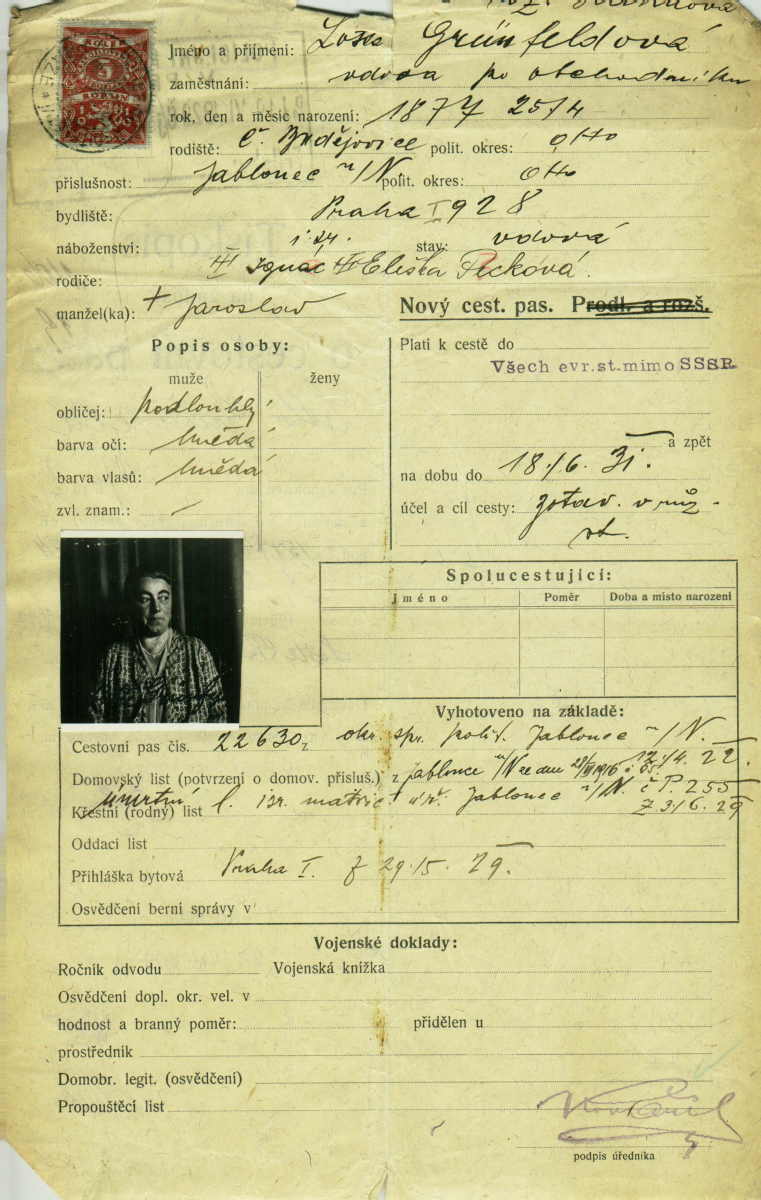 Jméno a příjmení: Grünfeldová
zaměstnání: vdova po obchodníku
rok, den a měsíc narození: 1877 25/4
rodiště: Č. polit. okres: otto
příslušnost: Jablonec n/N. polit. okres: otto
bydliště: Praha I 928
náboženství: stav: vdová
rodiče: Ignác Eliška
manžel(ka): + Jaroslav
Nový cest. pas. Prodl. a rozš.
Popis osoby:
muže ženy
obličej: podlouhlý
barva očí: hnědá
barva vlasů: hnědá
zvl. znam.: —
Platí k cestě do
Všech evr. st. mimo SSSR
a zpět
na dobu do 18./6. 31.
účel a cíl cesty: zotav. v růz-
st.
Spolucestující:
Jméno Poměr Doba a místo narození
Vyhotoveno na základě:
Cestovní pas čís. 22630, okr. spr. polit. Jablonec n/N.
Domovský list (potvrzení o domov. přísluš.) z Jablonce n/N ze dne 28/VIII 1916
Křestní (rodný) list úmrtní isr. Jablonec n/N. č P. 255
z 3./6. 29
Oddací list
Přihláška bytová Praha I. z 29./5. 29.
Osvědčení berní správy v
Vojenské doklady:
Ročník odvodu Vojenská knížka
Osvědčení dopl. okr. vel. v
hodnost a branný poměr: přidělen u
prostředník
Domobr. legit. (osvědčení)
Propouštěcí list
podpis úředníka